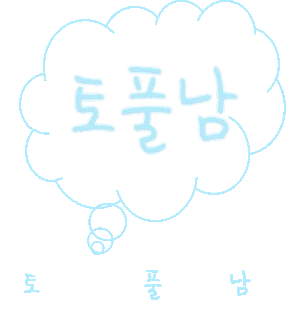 토풀남
토 풀 남